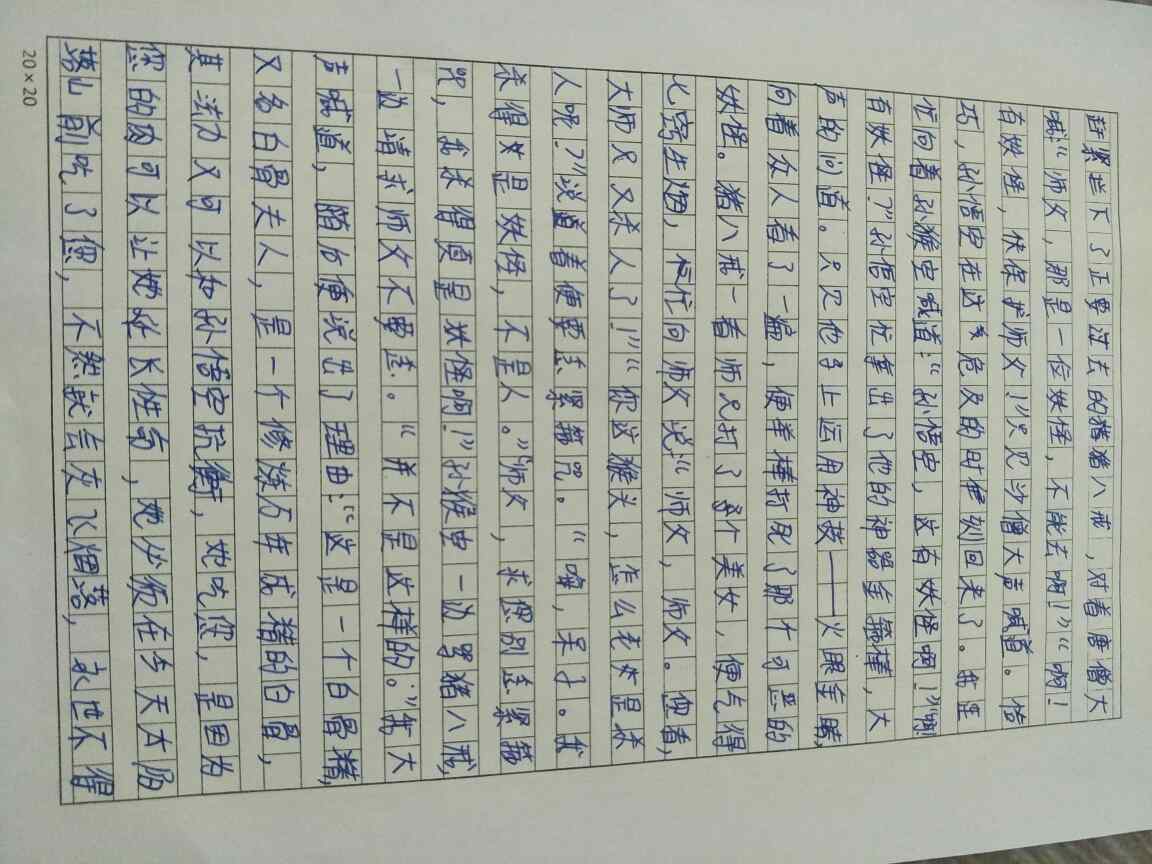 赶紧拦下了正要过去的猪猪八戒，对着唐僧大
喊“师父，那是一位妖怪，不能去啊！”“啊！
有妖怪，快保护师父！”只见沙僧大声喊道。恰
巧，孙悟空在这危及的时刻回来了。我里
忙向着孙猴空喊道：“孙悟空，这有妖怪啊！”哪
有妖怪？”孙悟空忙拿出了他的神器金箍棒，大
声的问道。只见他马上运用神技——火眼金睛，
向着众人看了一遍，便举棒打死了那个可恶的
妖怪。猪八戒一看师兄打了这个美女，便气得
七窍生烟，忙往向师父说“师父，师父。您看，
大师兄又杀人了！”“你这猴头，怎么老是杀
人呢？”说道着便要念紧箍咒。“唯，呆子。我
杀得是妖怪，不是人。”师父，求您别念紧箍
咒，我杀得真是妖怪啊！”孙猴空一边骂猪八戒，
一边请求师父不要念。“并不是这样的。”我大
声喊道，随后便说出了理由：“这是一个白骨精，
又名白骨夫人，是一个修炼万年成精的白骨，
其法力又可以和孙悟空抗衡，她吃您，是因为
您的肉可以让她延长性命，她必须在今天太阳
落山前吃了您，不然就会灰飞烟落，永世不得
20×20